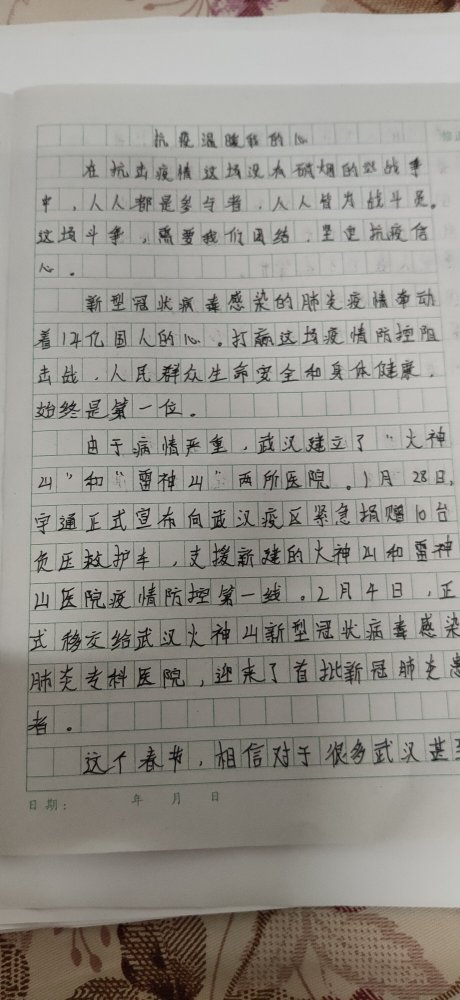 抗疫温暖我的心
在抗击疫情这场没有硝烟的战争
中,人人都是参与者,人人皆为战斗员。
这场斗争,需要我们团结,坚定抗疫信
心。
新型冠状病毒感染的肺炎疫情牵动
着14亿国人的心。打赢这场疫情防控阻
击战,人民群众生命安全和身体健康,
始终是第一位。
由于病情严重,武汉建立了“火神
山”和“雷神山”两所医院。1月28日,
宇通正式宣布向武汉疫区紧急捐赠10台
负压救护车,支援新建的火神山和雷神
山医院疫情防控第一线。2月4日,正
式移交给武汉火神山新型冠状病毒感染
肺炎专科医院,迎来了首批新冠肺炎患
者。
这个春节,相信对于很多武汉甚至
日期: 年 月 日